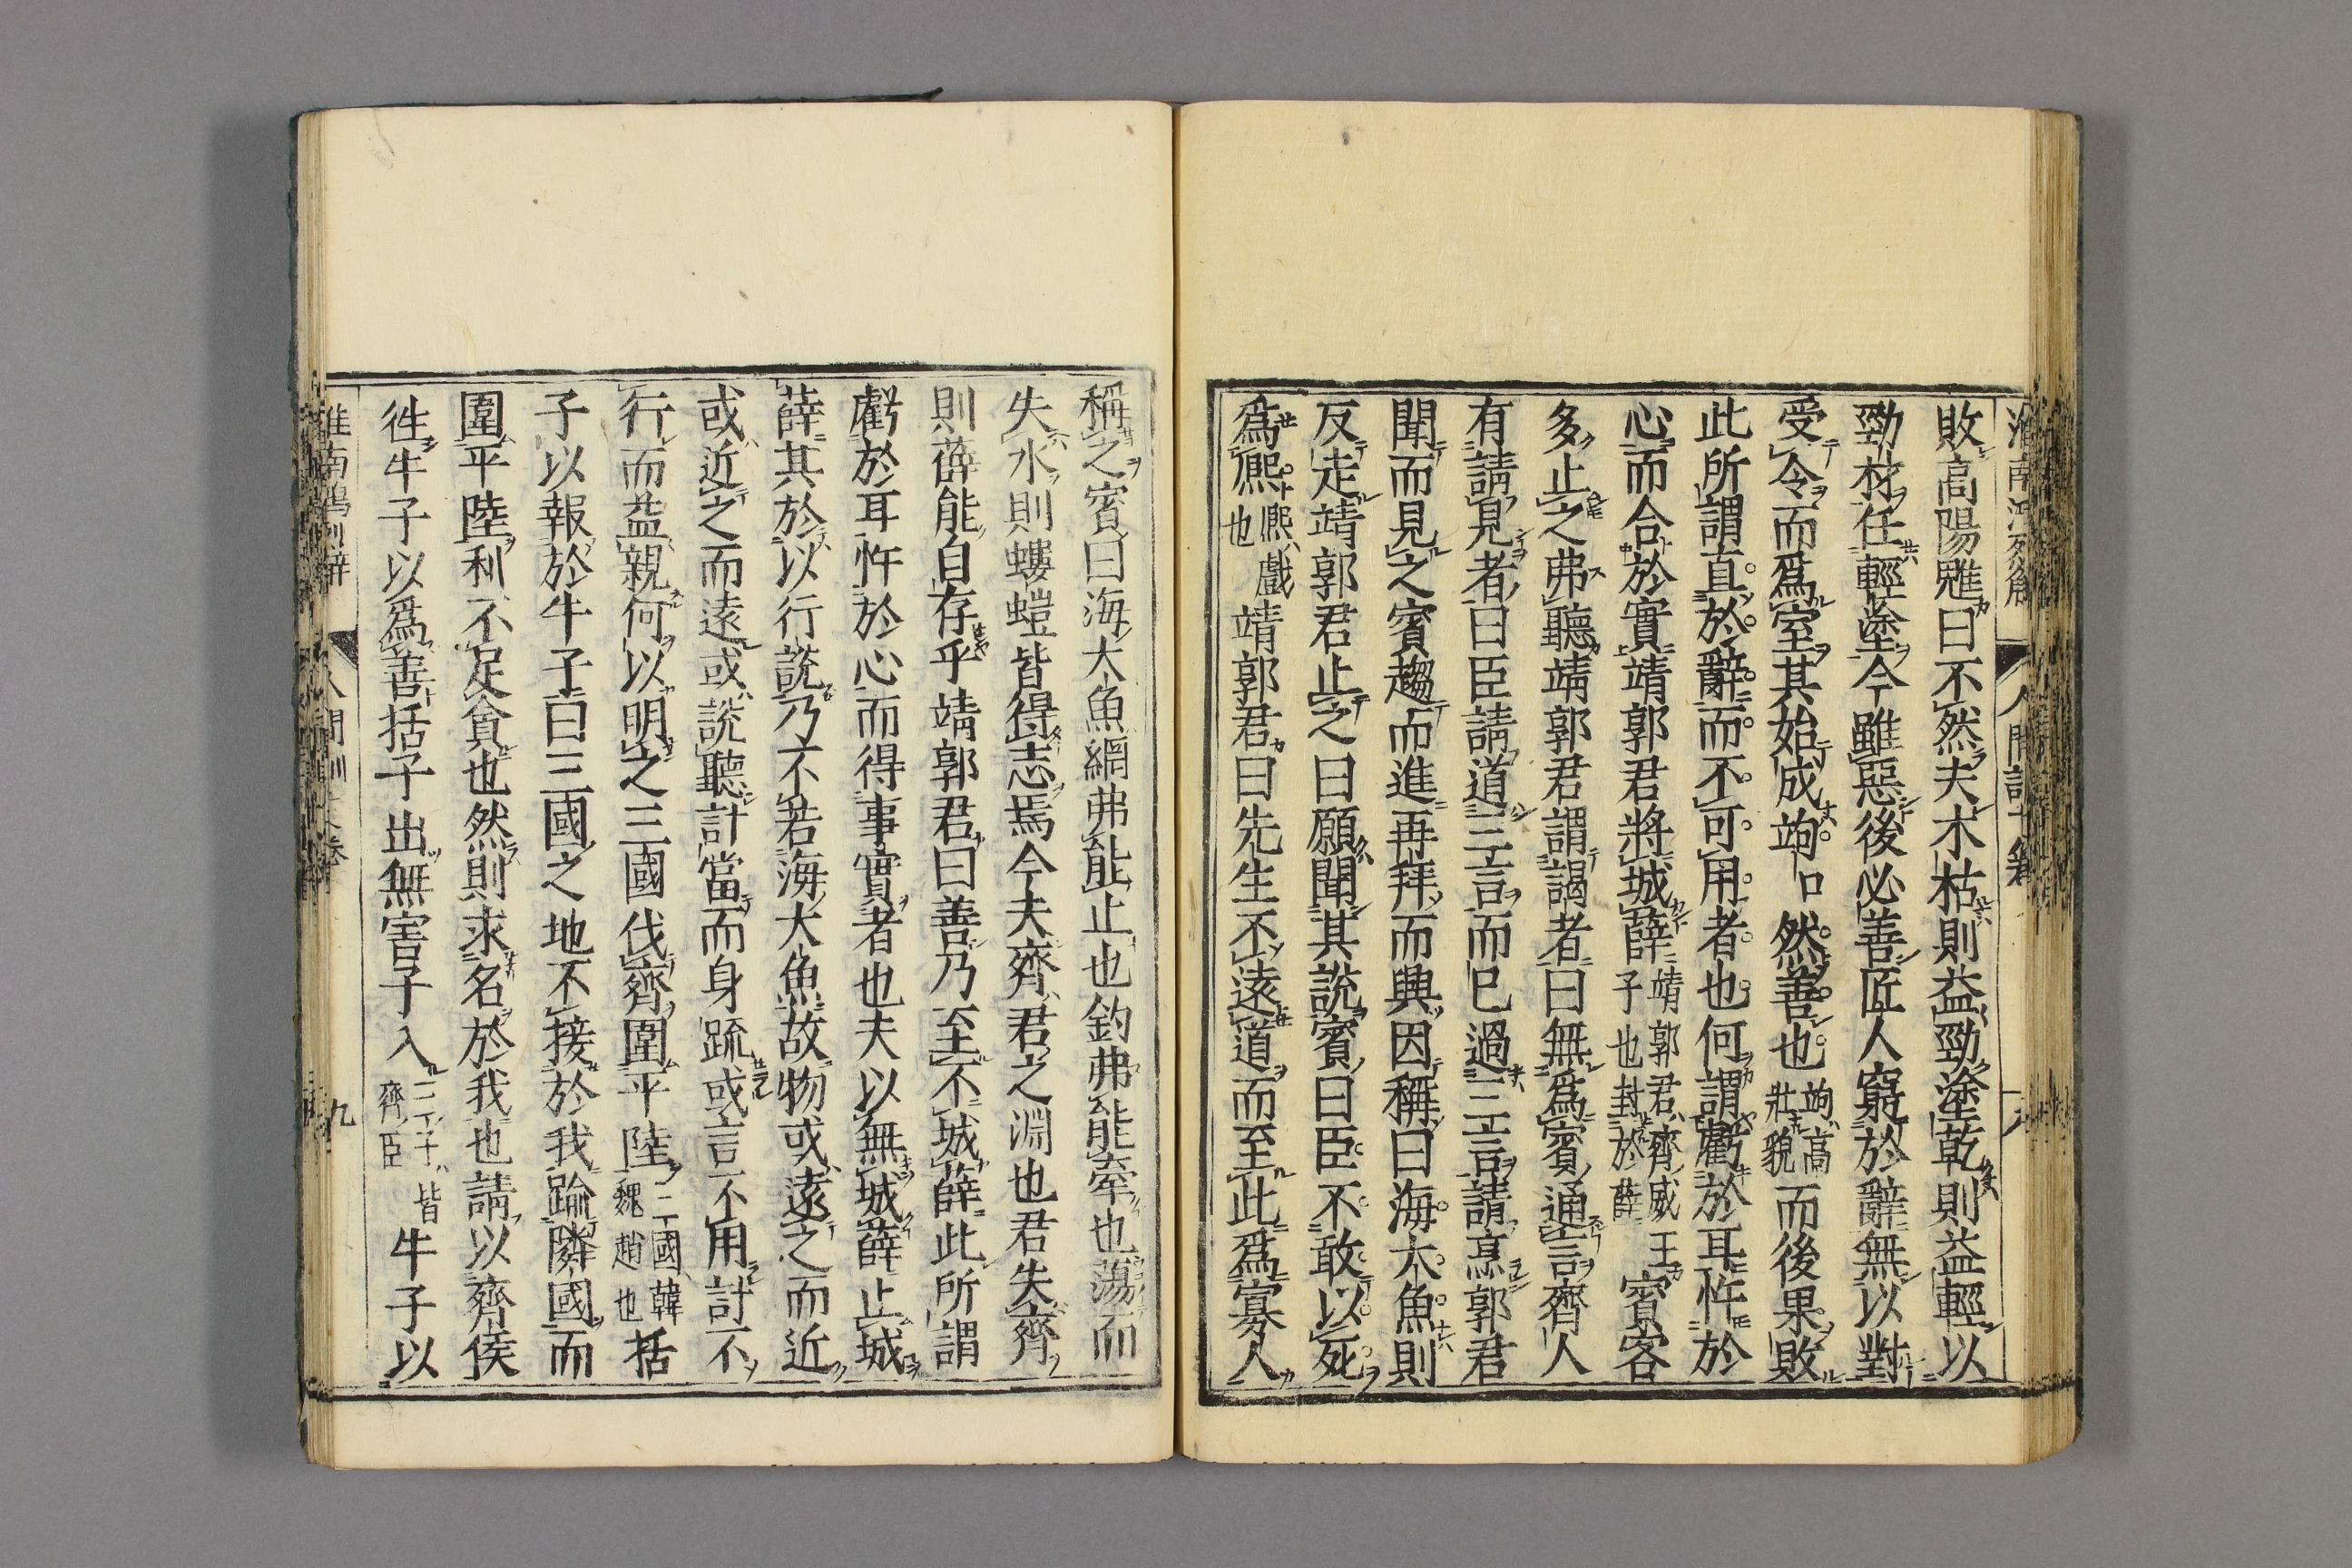 敗高陽魋曰不然夫木枯則益勁塗乾則益輕以
勁材任輕塗今雖惡後必善匠人窮於辭無以對
受令而爲室其始成竘然善也竘高壯貌而後果敗
此所謂直於辭而不可用者也何謂虧於耳忤於
心而合於實靖郭君將城薛靖郭君齊威王子也封於薛賓客
多止之弗聽靖郭君謂謁者曰無爲賓通言齊人
有請見者曰臣請道三言而已過三言請烹郭君
聞而見之賓趨而進再拜而興因稱曰海大魚則
反走靖郭君止之曰願聞其說賓曰臣不敢以死
爲熈熈戲也靖郭君曰先生不遠道而至此爲寡人
稱之賓曰海大魚網弗能止也釣弗能牽也蕩而
失水則螻螘皆得志焉今夫齊君之淵也君失齊
則薛能自存乎靖郭君曰善乃至不城薛此所謂
虧於耳忤於心而得事實者也夫以無城薛止城
薛其於以行說乃不若海大魚故物或遠之而近
或近之而遠或說聽計當而身疏或言不用計不
行而益親何以明之三國伐齊圍平陸三國韓魏趙也括
子以報於牛子曰三國之地不接於我踰隣國而
圍平陸利不足貪也然則求名於我也請以齊侯
徃牛子以爲善括子出無害子入三子皆齊臣牛子以
人間訓
九